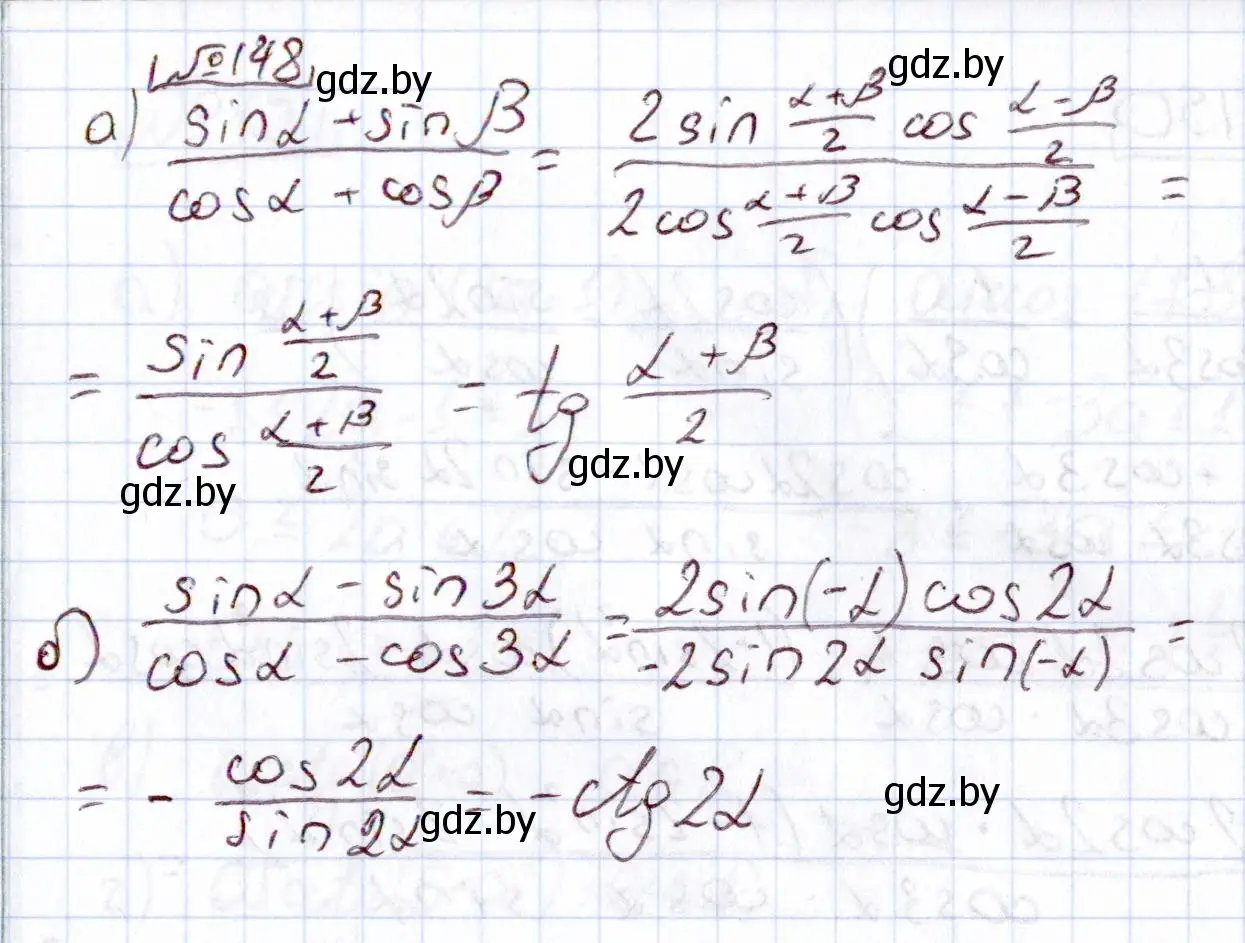 №148
gdz.by
gdz.by
а) (sinα + sinβ)/(cosα + cosβ) = (2sin (α+β)/2 cos (α-β)/2)/(2cos (α+β)/2 cos (α-β)/2) =
= (sin (α+β)/2)/(cos (α+β)/2) = tg (α+β)/2
gdz.by
gdz.by
б) (sinα - sin3α)/(cosα - cos3α) = (2sin(-α) cos2α)/(-2sin2α sin(-α)) =
= - cos2α/sin2α = - ctg2α
gdz.by
gdz.by